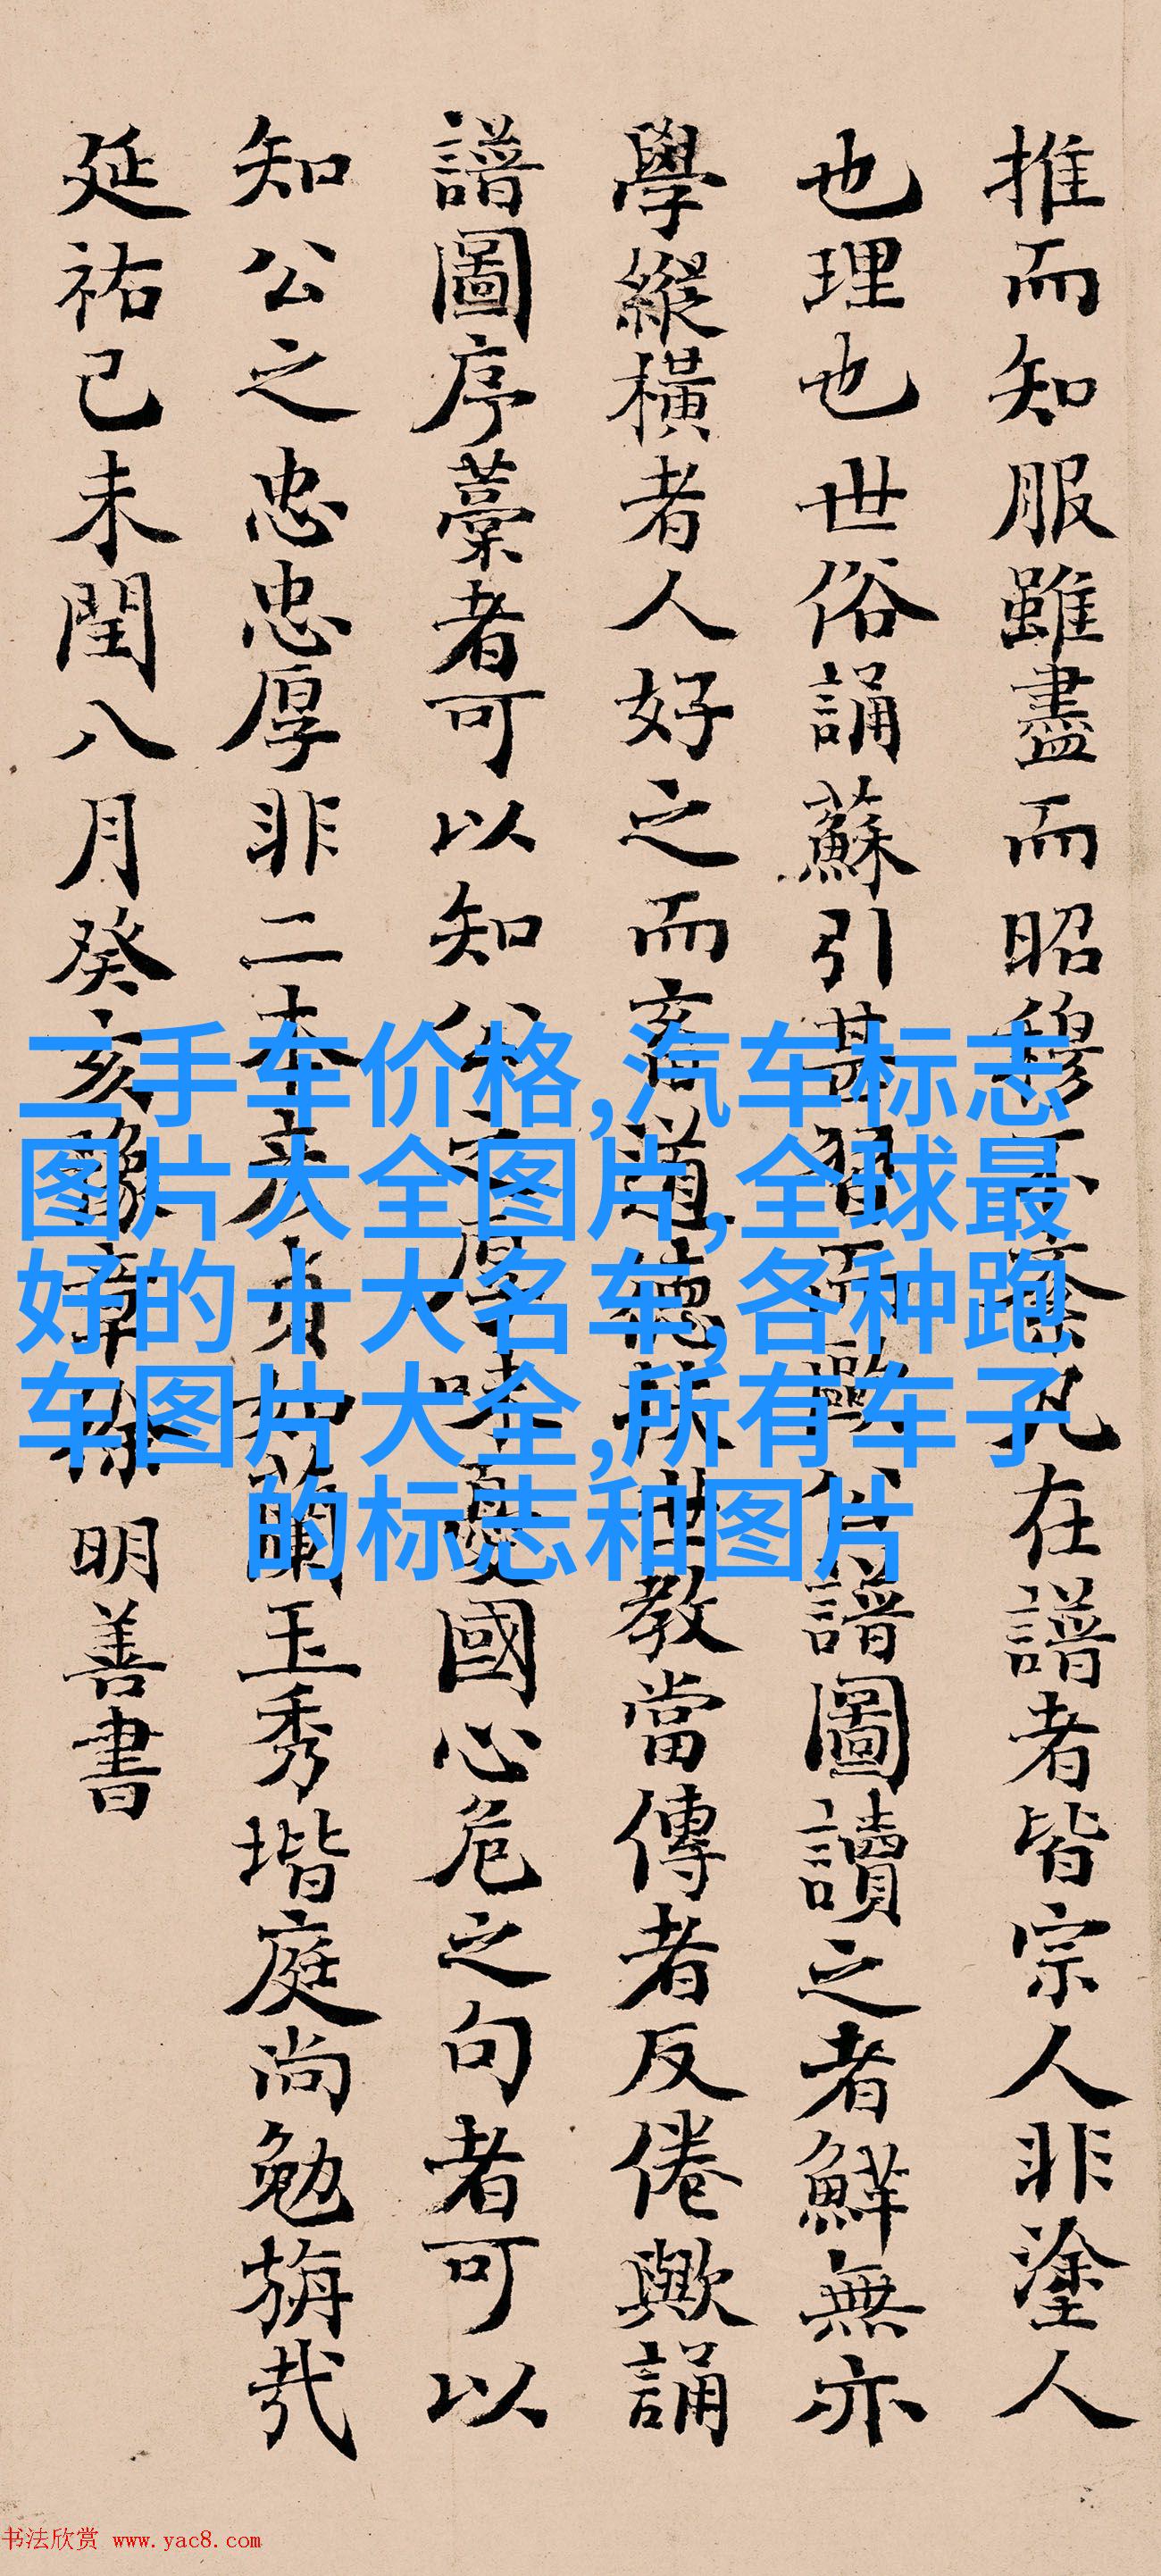 推而知服雖盡而昭穆不紊凡在譜者皆宗人非塗人
也理也世俗誦蘇引甚習而歐公譜圖讀之者鮮無亦
學縱橫者人好之而言道德扶世教當傳者反倦歟誦
譜圖序藁者可以知公之厚味憂國心危之句者可以
知公之忠忠厚非二本也
芝蘭玉秀堦庭尚勉旃哉
延祐已未閏八月癸亥豫章徐明善書
二手车价格,汽车标志
图片大全图片,全球最
好的十大名车,各种跑
车图片大全,所有车子
的标志和图片
书法欣赏 www.yac8.com